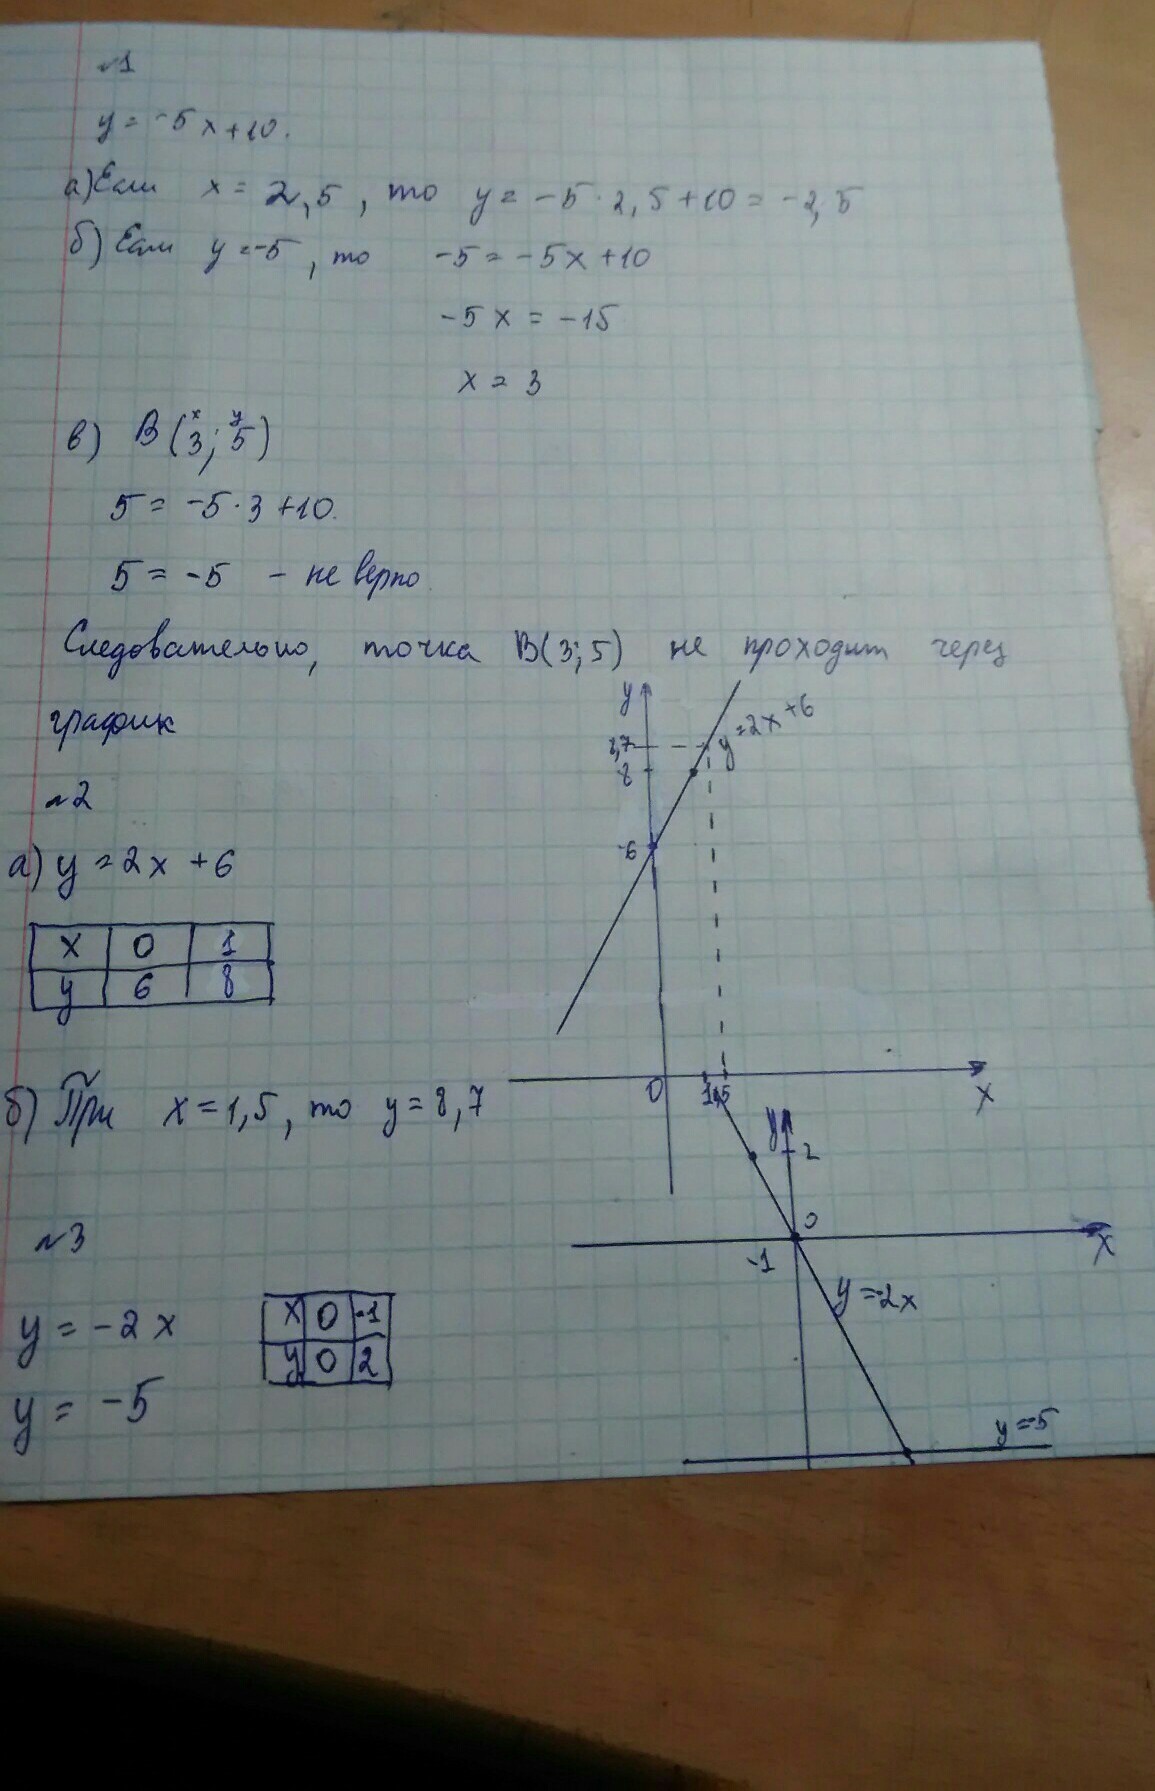 №1
y = -5x+10.
а) Если x = 2,5, то y = -5·2,5+10 = -2,5
б) Если y = -5, то -5 = -5x+10
-5x = -15
x = 3
x y
в) B(3; 5)
5 = -5·3+10.
5 = -5 - не верно
Следовательно, точка B(3; 5) не проходит через
график
№2
а) y = 2x+6
x 0 1
y 6 8
y
8,7
8
6
y=2x+6
0 1 1,5 x
б) При x = 1,5, то y = 8,7
№3
y = -2x
y = -5
x 0 -1
y 0 2
y
2
0
-1
x
y=-2x
y=-5